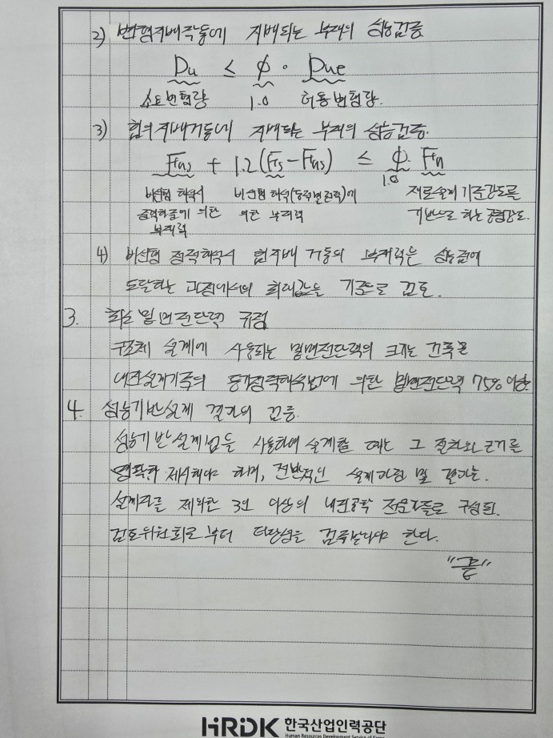 2) 변형지배거동에 지배되는 부재의 성능검증
Du ≤ φ · Due
소요변형량 1.0 허용변형량.
3) 힘의지배거동에 지배되는 부재의 성능검증.
Fns + 1.2(Fs - Fns) ≤ φ Fn
1.0
비선형 해석 비선형 해석(동적)에 재료설계기준강도를
중력하중에 의한 의한 부재력 기반으로 하는 공칭강도.
부재력
4) 비선형 정적해석시 힘지배 거동의 부재력은 성능점에
도달하는 과정에서의 최대값을 기준으로 검토.
3. 최소 밑면전단력 규정
구조체 설계에 사용되는 밑면전단력의 크기는 건축물
내진설계기준의 등가정적해석법에 의한 밑면전단력 75% 이상.
4. 성능기반설계 결과의 검증
성능기반설계법을 사용하여 설계할 때는 그 절차와 근거를
명확히 제시해야 하며, 전반적인 설계과정 및 결과는.
설계자를 제외한 3인 이상의 내진공학 전문가들로 구성된.
검토위원회로부터 타당성을 검증받아야 한다.
"끝"
HRDK 한국산업인력공단
Human Resources Development Service of Korea